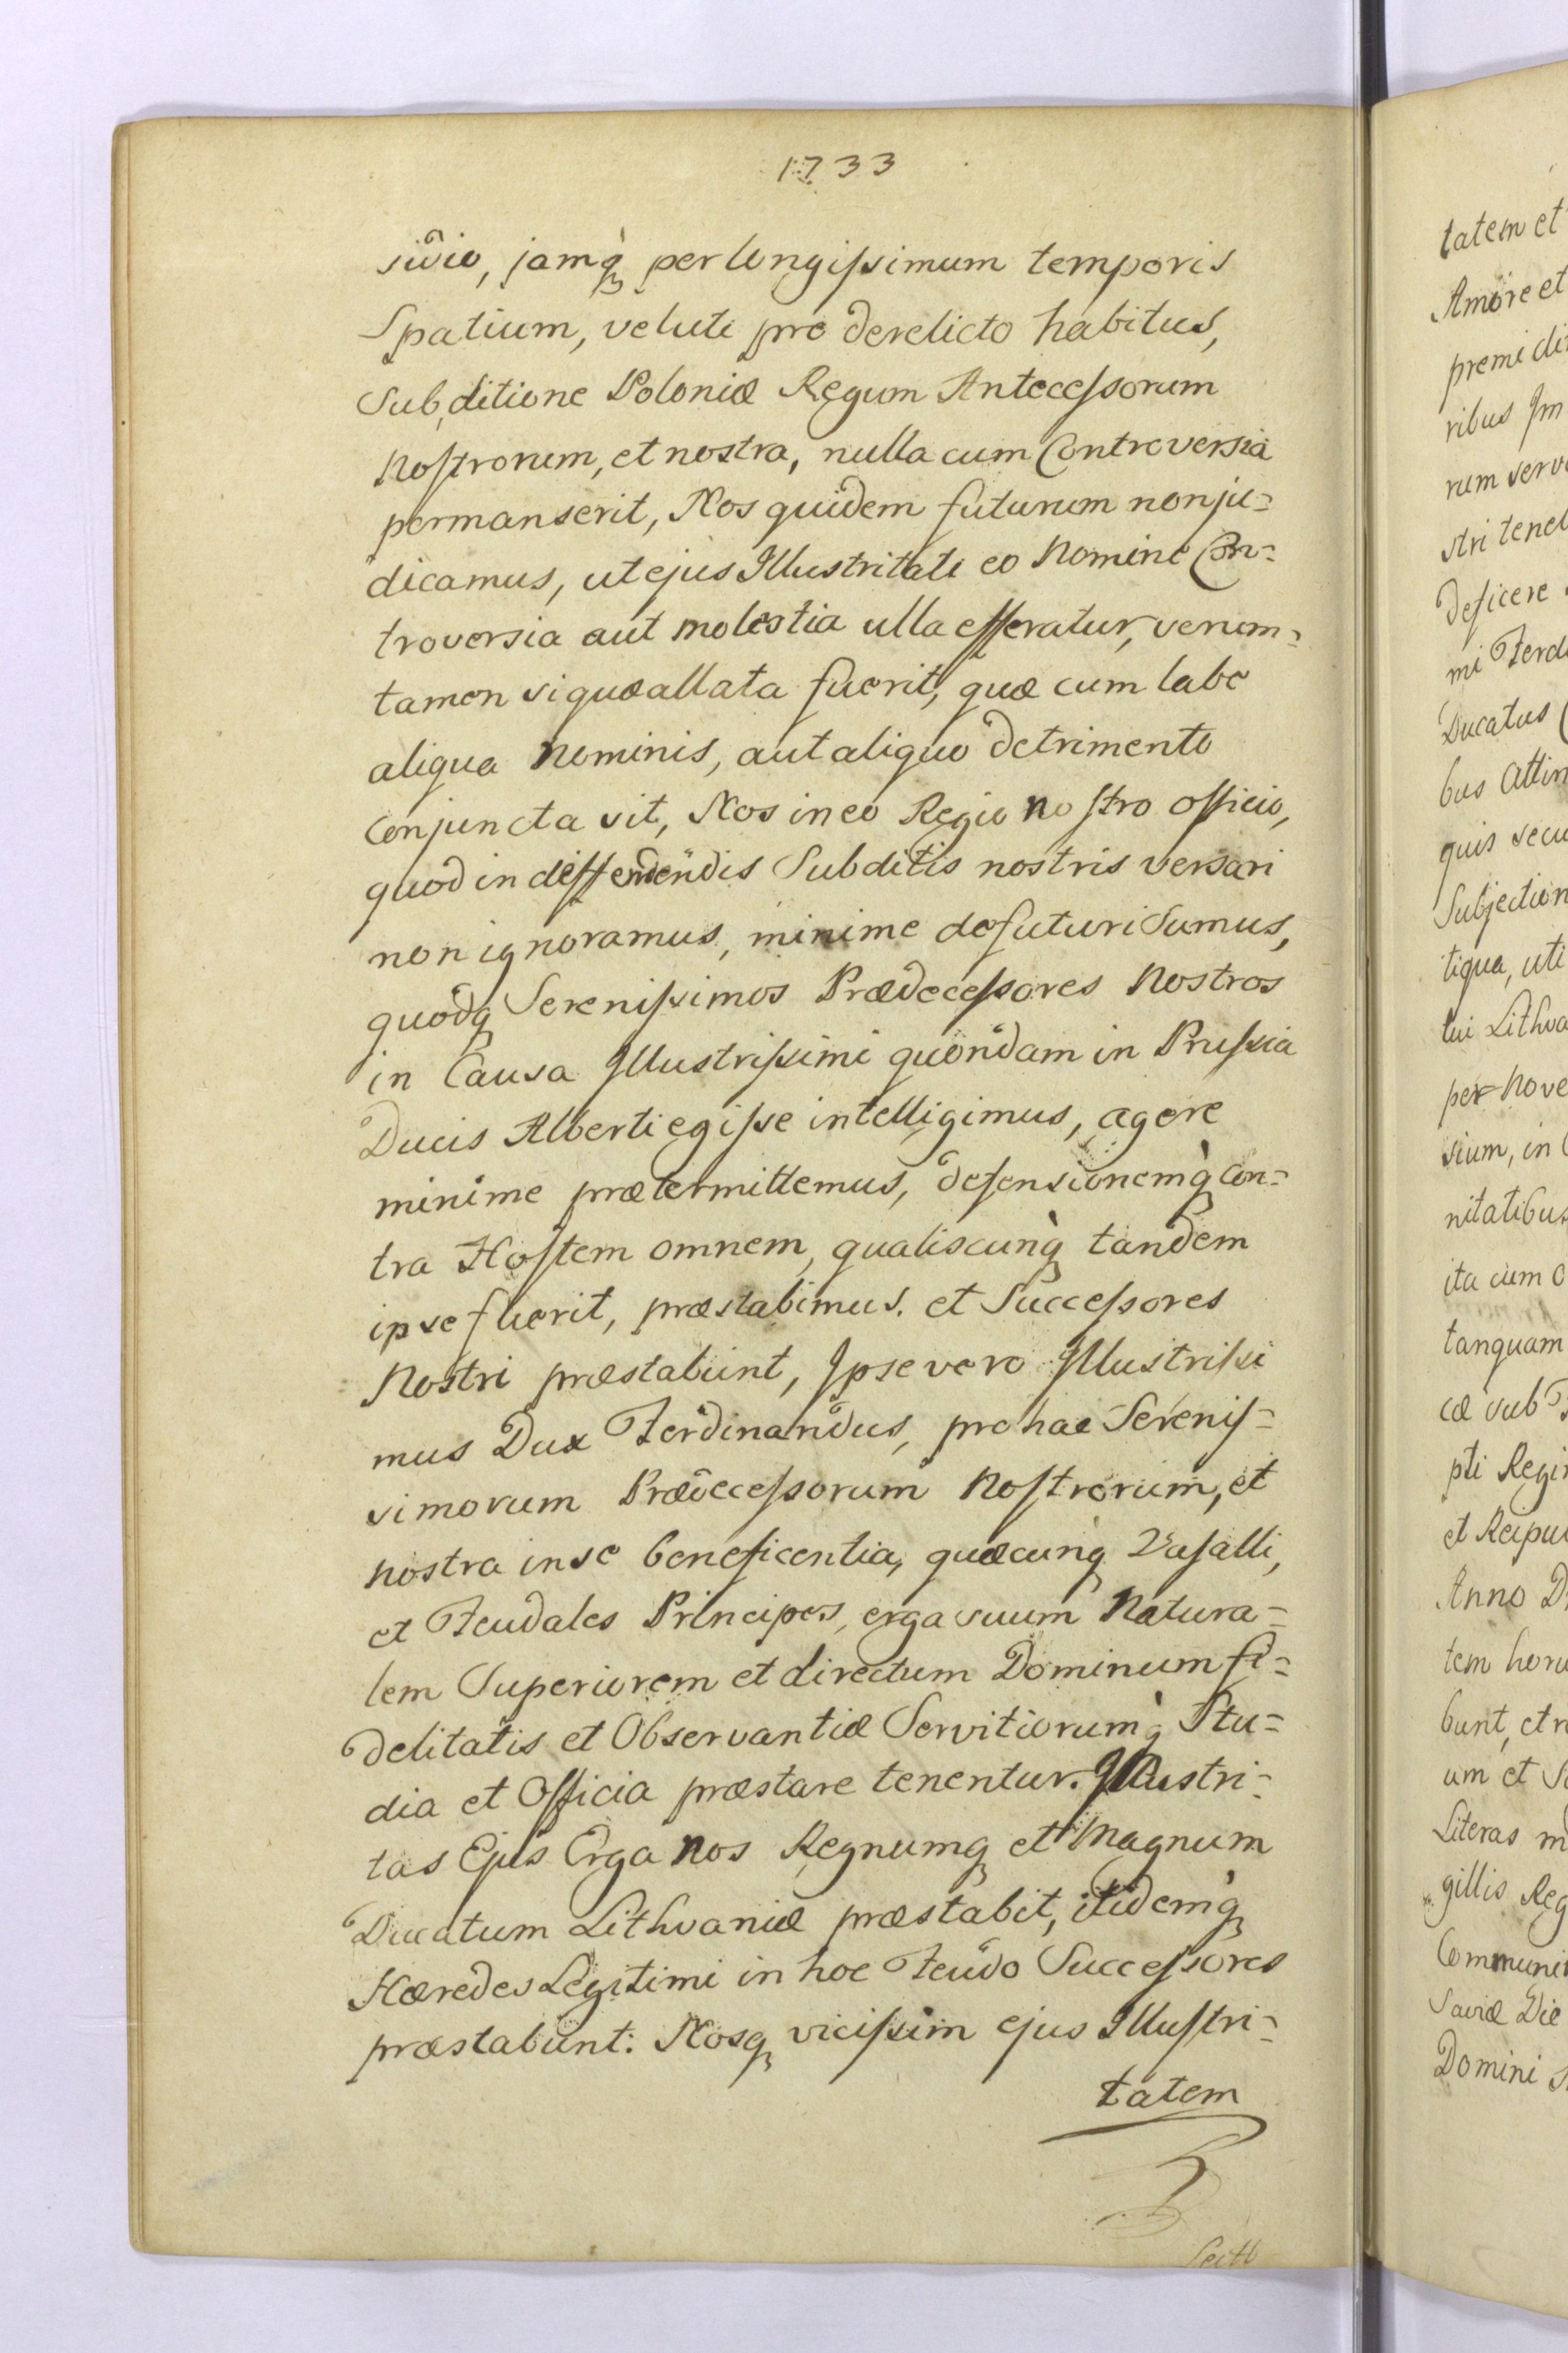 1733
sidio, jamq́ per longiſsimum temporis
Spatium, veluti pro derelicto habitus,
Sub ditione Poloniæ Regum Anteceſsorum
Noſtrorum, et nostra, nulla cum Controversia
permanserit, Nos quidem futurum non ju=
dicamus, ut ejus Illustritati eo Nomine Con=
troversia aut molestia ulla efferatur, verum=
tamen si quæ allata fuerit, quæ cum labe
aliqua Nominis, aut aliquo detrimento
conjuncta sit, Nos in eo Regio noſtro officio,
quod in deffendendis Subditis nostris versari
non ignoramus, minime defuturi Sumus,
quodq Sereniſsimos Prædeceſsores Nostros
in Causa Illustriſsimi quondam in Pruſsia
Ducis Alberti egiſse intelligimus, agere
minime prætermittemus, defensionemq́ con=
tra Hoſtem omnem, qualiscunq́ tandem
ipse fuerit, præstabimus. et Succeſsores
Nostri præstabunt, Ipse vero Illustriſsi
mus Dux Ferdinandus, pro hac Sereniſ=
simorum Prædeceſsorum Noſtrorum, et
nostra in se beneficentia, quæcunq́ Vasalli,
et Feudales Principes, erga suum Natura=
lem Superiorem et directum Dominum fi=
delitatis et Observantiæ Servitiorumq́ Stu=
dia et Officia præstare tenentur. Illustri=
tas Ejus Erga Nos Regnumq et Magnum
Ducatum Lithvaniæ præstabit, itidemq́
Hæredes Legitimi in hoc Feudo Succeſsores
præstabunt: Nosq viciſsim ejus Illuſtri=
tatem
tatem et
Amore et
premi
ribus Im
rum
stri
deficere
mi
Ducatus
bus
quis
tiqua, uti
tui
per
sium, in
nitatibus
ita cum
tanquam
cæ sub
pti
et
Anno
tem
bunt, et
um et
Literas
gillis
Domini